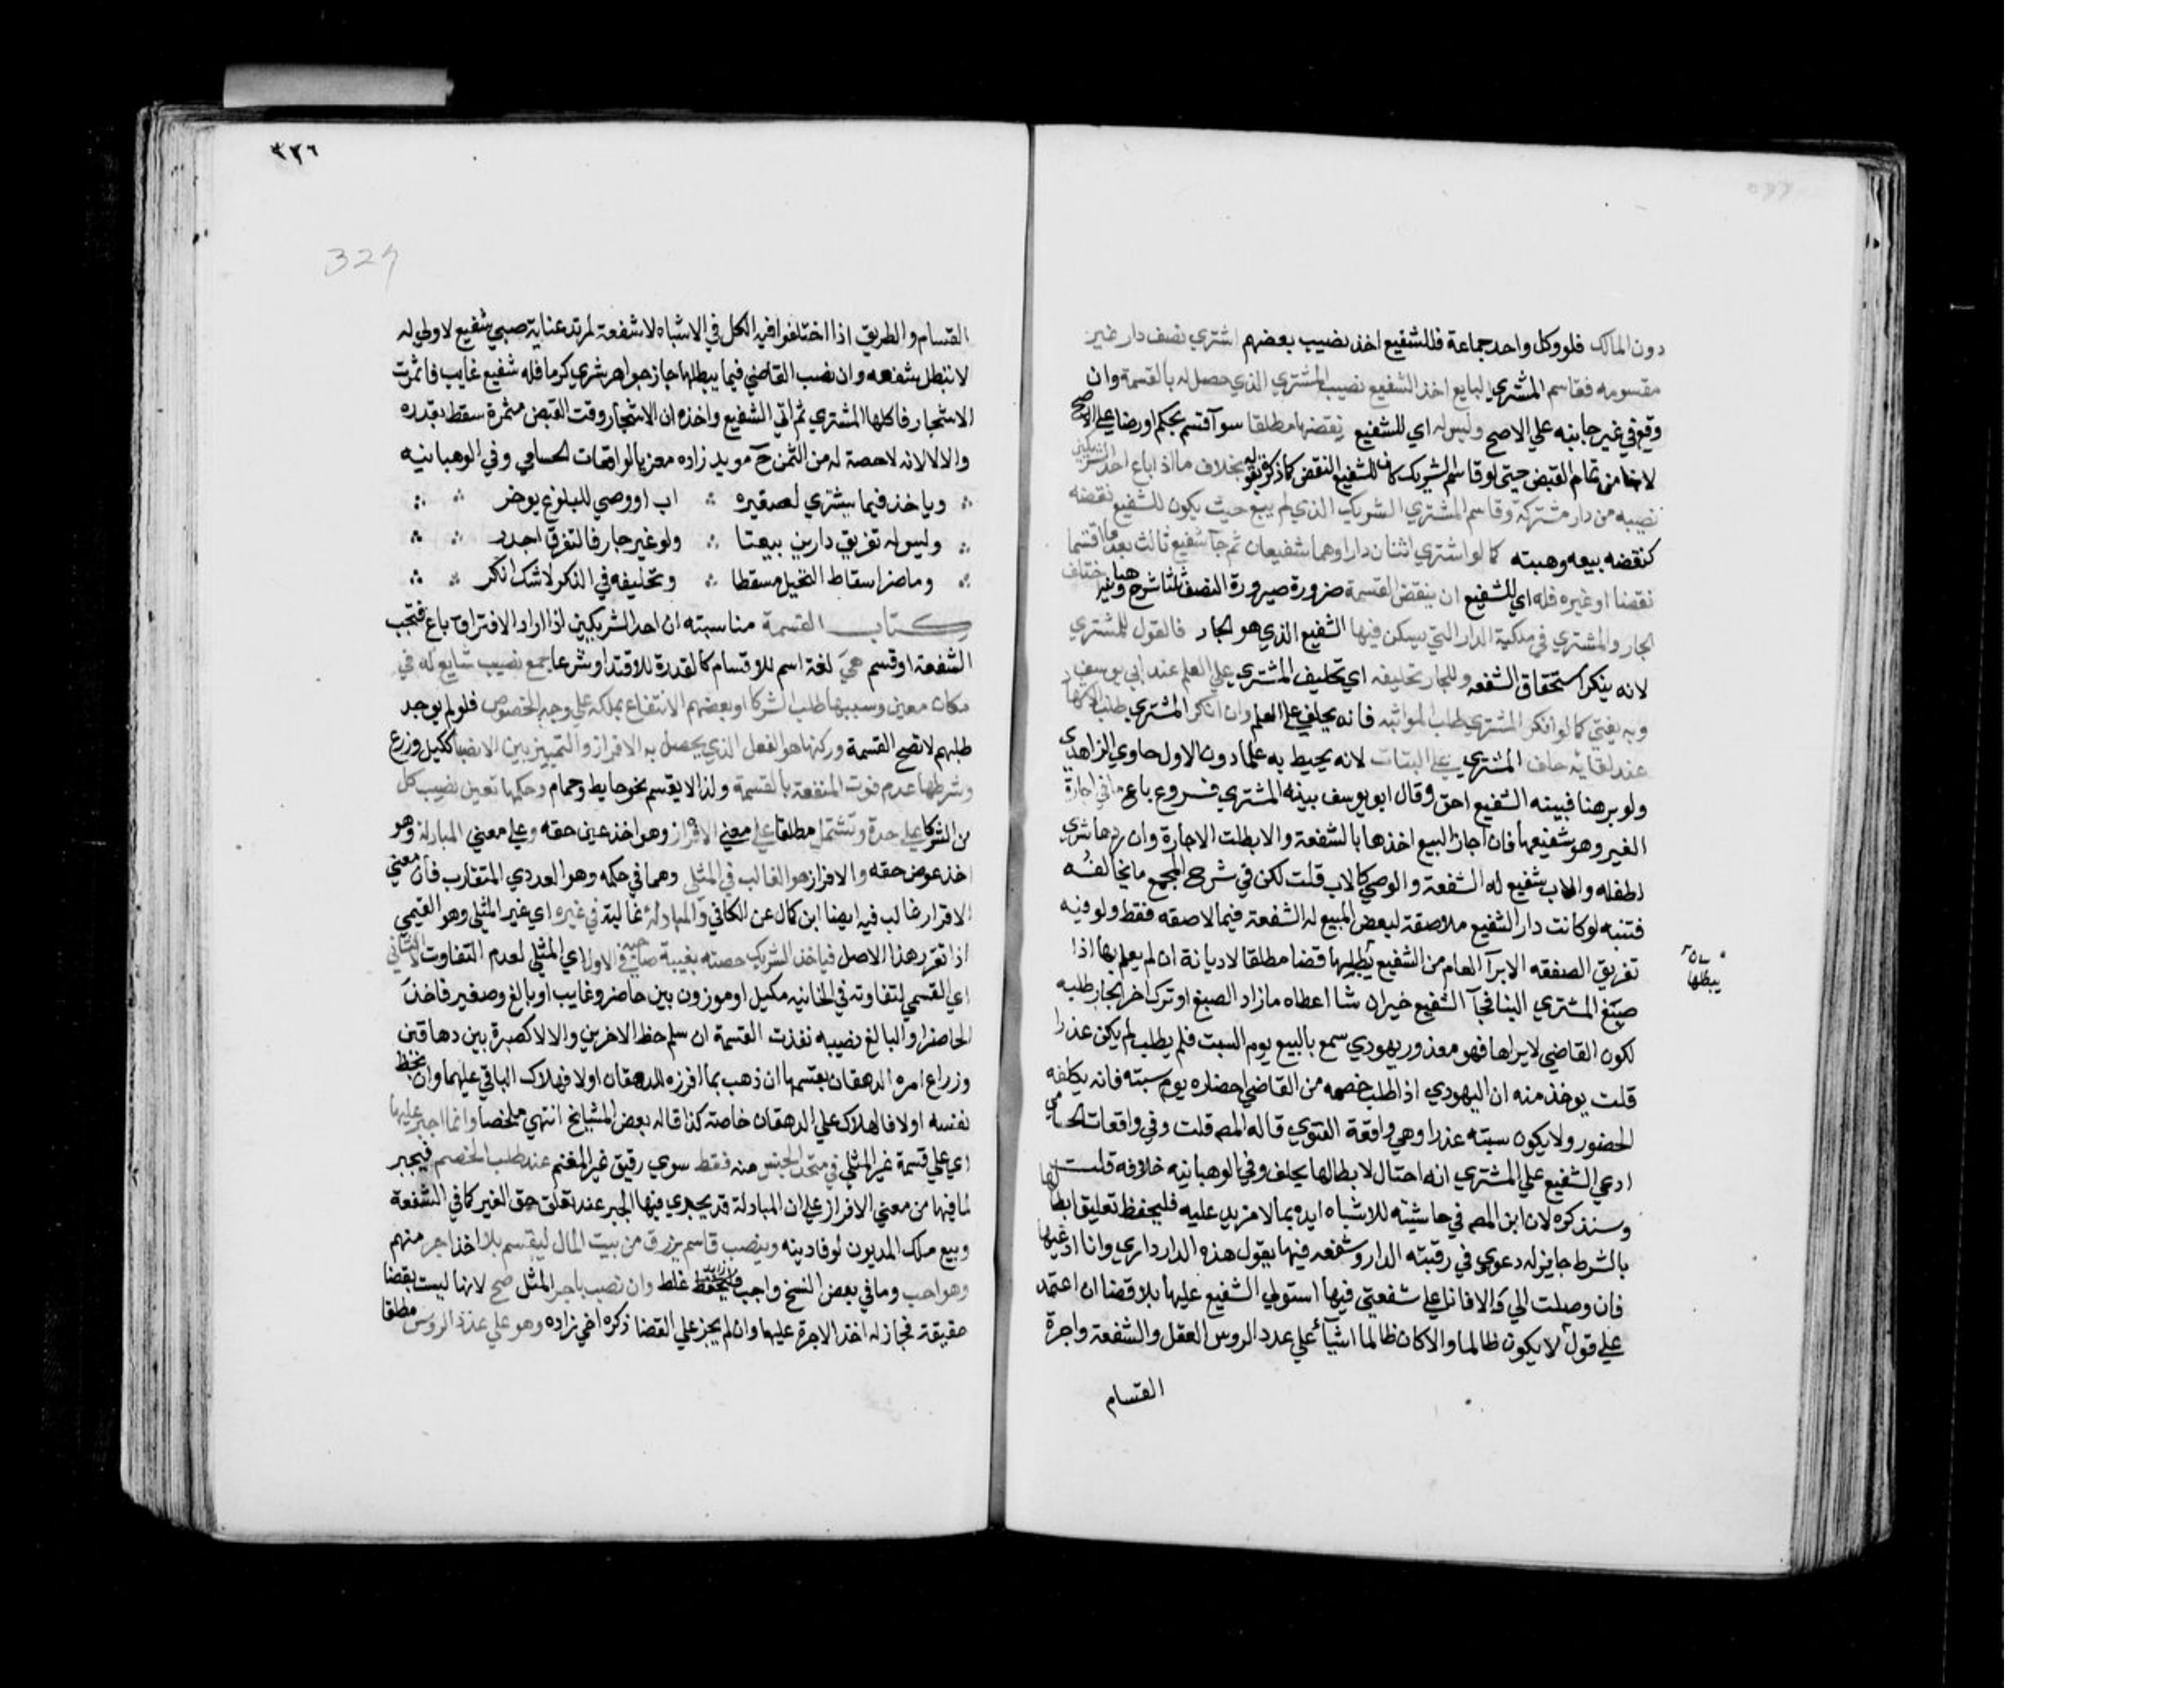 دون المالك فلو وكل واحد جماعة فللشفيع اخذ نصيب بعضهم اشتري نصف دار غير
مقسومه فقاسم المشتري البايع اخذ الشفيع نصيب المشتري الذي حصل له بالقسمة وان
وقع في غير جانبه علي الاصح وليس له اي للشفيع نقضها مطلقا سوآ قسم بحكم او رضا علي الاصح
لانها من تمام القبض حتي لو قاسم الشريك كان للشفيع النقض كما ذكره بقوله بخلاف ما اذا باع احد الشريكين
نصيبه من دار مشتركة وقاسم المشتري الشريك الذي لم يبع حيث يكون للشفيع نقضه
كنقضه بيعه وهبته كما لو اشتري اثنان دارا وهما شفيعان ثم جآ شفيع ثالث بعد ما اقتسما
نقضنا او غيره فله اي للشفيع ان ينقض القسمة ضرورة صيرورة النصف ثلثا شرح وهبانية اختلف
الجار والمشتري في ملكية الدار التي يسكن فيها الشفيع الذي هو الجار فالقول للمشتري
لانه ينكر استحقاق الشفعه وللجار تحليفه اي تحليف المشتري علي العلم عند ابي يوسف
وبه يفتي كما لو انكر المشتري طلب المواثبه فانه يحلف علي العلم وان انكر المشتري طلب الاشهاد
عند لقائه حلف المشتري علي البتات لانه يحيط به علما دون الاول حاوي الزاهدي
ولو برهنا فبينه الشفيع احق وقال ابو يوسف بينة المشتري فروع باع ما في اجارة
الغير وهو شفيعها فان اجاز البيع اخذها بالشفعة والا بطلت الاجارة وان ردها شري
لطفله والاب شفيع له الشفعة والوصي كالاب قلت لكن في شرح المجمع ما يخالفه
فتنبه لو كانت دار الشفيع ملاصقة لبعض المبيع له الشفعة فيما لاصقه فقط ولو فيه
تفريق الصفقه الابرآ العام من الشفيع يبطلها قضا مطلقا لا ديانة ان لم يعلم بها اذا
صبغ المشتري البنا فجآ الشفيع خير ان شا اعطاه ما زاد الصبغ او ترك اخر الجار طلبه
لكون القاضي لا يراها فهو معذور يهودي سمع بالبيع يوم السبت فلم يطلب لم يكن عذرا
قلت يوخذ منه ان اليهودي اذا طلب خصمه من القاضي احضاره يوم سبته فانه يكلفه
الحضور ولا يكون سبته عذرا وهي واقعة الفتوي قاله المصه قلت وفي واقعات الحسامي
ادعي الشفيع علي المشتري انه احتال لابطالها يحلف وفي الوهبانيه خلافه قلت
وسنذكره لان ابن المصه في حاشيته للاشباه ايده بما لا مزيد عليه فليحفظ تعليق ابطالها
بالشرط جايز له دعوي في رقبته الدار وشفعه فيها يقول هذه الدار داري وانا ادعيها
فان وصلت الي والا فانا علي شفعتي فيها استولي الشفيع عليها بلا قضا ان اعتمد
علي قول لا يكون ظالما والا كان ظالما اشيآء علي عدد الروس العقل والشفعة واجرة
القسام
يبطلها
٣٢٦
القسام والطريق اذا اختلفوا فيه الكل في الاشباه لا شفعة لمرتد عناية صبي شفيع لا ولي له
لا تبطل شفعه وان نصب القاضي فيما يبطلها جاز جواهر شري كرما فله شفيع غايب فاثمرت
الاشجار فاكلها المشتري ثم اتي الشفيع واخذه ان الاشجار وقت القبض مثمرة سقط بقدره
والا لا لانه لا حصة له من الثمن ح مويد زاده معزيا لواقعات الحسامي وفي الوهبانيه
وياخذ فيما يشتري لصغيره اب او وصي للبلوغ يوخر
وليس له تفريق دارين بيعتا ولو غير جار فالتفرق اجدر
وما ضر اسقاط التحيل مسقطا وتحليفه في النكر لا شك انكر
كتاب القسمة مناسبته ان احد الشريكين اذا اراد الافتراق باع فتجب
الشفعة او قسم هي لغة اسم للاقتسام كالقدرة للاقتدار وشرعا جمع نصيب شايع له في
مكان معين وسببها طلب الشركا او بعضهم الانتفاع بملكه علي وجه الخصوص فلو لم يوجد
طلبهم لا تصح القسمة وركنها هو الفعل الذي يحصل به الافراز والتمييز بين الانصبا ككيل وزرع
وشرطها عدم فوت المنفعة بالقسمة ولذا لا يقسم نحو حايط وحمام وحكمها تعين نصيب كل
من الشركا علي حدة وتشتمل مطلقا علي معني الافراز وهو اخذ عين حقه وعلي معني المبادلة وهو
اخذ عوض حقه والافراز هو الغالب في المثلي وهما في حكمه وهو العددي المتقارب فان معني
الافراز غالب فيه ايضا ابن كمال عن الكافي والمبادلة غالبة في غيره اي غير المثلي وهو القيمي
اذا تقرر هذا الاصل فياخذ الشريك حصته بغيبة صاحبه في الاول اي المثلي لعدم التفاوت لا الثاني
اي القسمي لتفاوته في الخانيه مكيل او موزون بين حاضر وغايب او بالغ وصغير فاخذ
الحاضر او البالغ نصيبه نفذت القسمة ان سلم حظ الاخرين والا لا كصبرة بين دهاقين
وزراع امره الدهقان بقسمها ان ذهب بما افرزه للدهقان اولا فهلاك الباقي عليهما وان بحظ
نفسه اولا فالهلاك علي الدهقان خاصة كذا قاله بعض المشايخ انتهي ملخصا وانما اجبر عليها
اي علي قسمة غير المثلي في متحد الجنس منه فقط سوي رقيق غير المغنم عند طلب الخصم فيجبر
لما فيها من معني الافراز علي ان المبادلة قد يجري فيها الجبر عند تعلق حق الغير كما في الشفعة
وبيع ملك المديون لوفا دينه وينصب قاسم يرزق من بيت المال ليقسم بلا اخذ اجر منهم
وهو احب وما في بعض النسخ واجب غلط وان نصب باجر المثل صح لانها ليست بقضا
حقيقة فجاز له اخذ الاجرة عليها وان لم يجز علي القضا ذكره اخي زاده وهو علي عدد الروس مطلقا